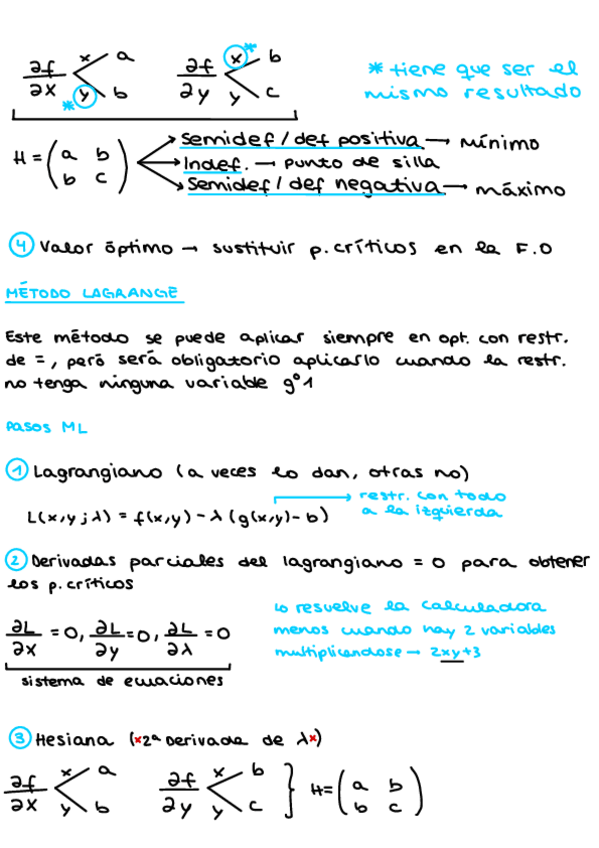 ∂f/∂x < x a, y* b    ∂f/∂y < x* b, y c    * tiene que ser el
mismo resultado
H = (a b; b c) → Semidef / def positiva → mínimo
→ Indef. → punto de silla
→ Semidef / def negativa → máximo
④ Valor óptimo → sustituir p. críticos en la F.O
MÉTODO LAGRANGE
Este método se puede aplicar siempre en opt. con restr.
de =, pero será obligatorio aplicarlo cuando la restr.
no tenga ninguna variable gº1
PASOS ML
① Lagrangiano (a veces lo dan, otras no)
→ restr. con todo
a la izquierda
L(x,y;λ) = f(x,y) - λ (g(x,y) - b)
② Derivadas parciales del lagrangiano = 0 para obtener
los p. críticos
∂L/∂x = 0, ∂L/∂y = 0, ∂L/∂λ = 0
sistema de ecuaciones
Lo resuelve la calculadora
menos cuando hay 2 variables
multiplicandose → 2xy+3
③ Hesiana (x2ª Derivada de λx)
∂f/∂x < x a, y b    ∂f/∂y < x b, y c } H = (a b; b c)